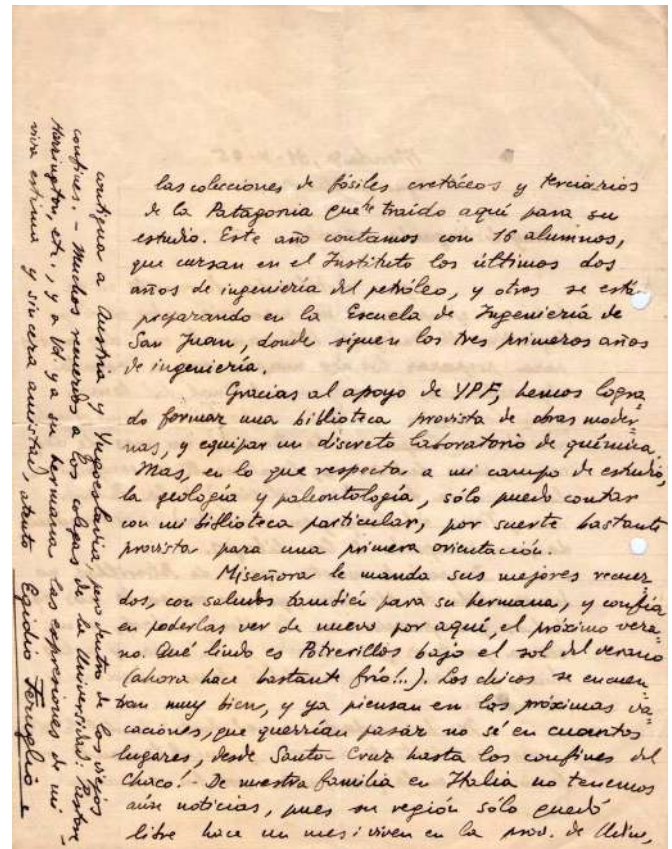 las colecciones de fósiles cretáceos y terciarios
de la Patagonia que he traído aquí para su
estudio. Este año contamos con 16 alumnos,
que cursan en el Instituto los últimos dos
años de ingeniería del petróleo, y otros se está
preparando en la Escuela de Ingeniería de
San Juan, donde siguen los tres primeros años
de ingeniería.
Gracias al apoyo de YPF, hemos logra-
do formar una biblioteca provista de obras moder-
nas, y equipar un discreto laboratorio de química.
Mas, en lo que respecta a mi campo de estudio,
la geología y paleontología, sólo puedo contar
con mi biblioteca particular, por suerte bastante
provista para una primera orientación.
Mi señora le manda sus mejores recuer-
dos, con saludos también para su hermana, y confía
en poderlas ver de nuevo por aquí, el próximo vera-
no. Qué lindo es Potrerillos bajo el sol del verano
(ahora hace bastante frío!..). Los chicos se encuen-
tran muy bien, y ya piensan en las próximas va-
caciones, que querrían pasar no sé en cuantos
lugares, desde Santa Cruz hasta los confines del
Chaco! - De nuestra familia en Italia no tenemos
aún noticias, pues su región sólo quedó
libre hace un mes: viven en la prov. de Udine,
contigua a Austria y Yugoeslavia, pero dentro de los viejos
confines. - Muchos recuerdos a los colegas de la Universidad:
Harrington, etc., y a Vd. y a su hermana las expresiones de mi
viva estima y sincera amistad, atento Egidio Feruglio